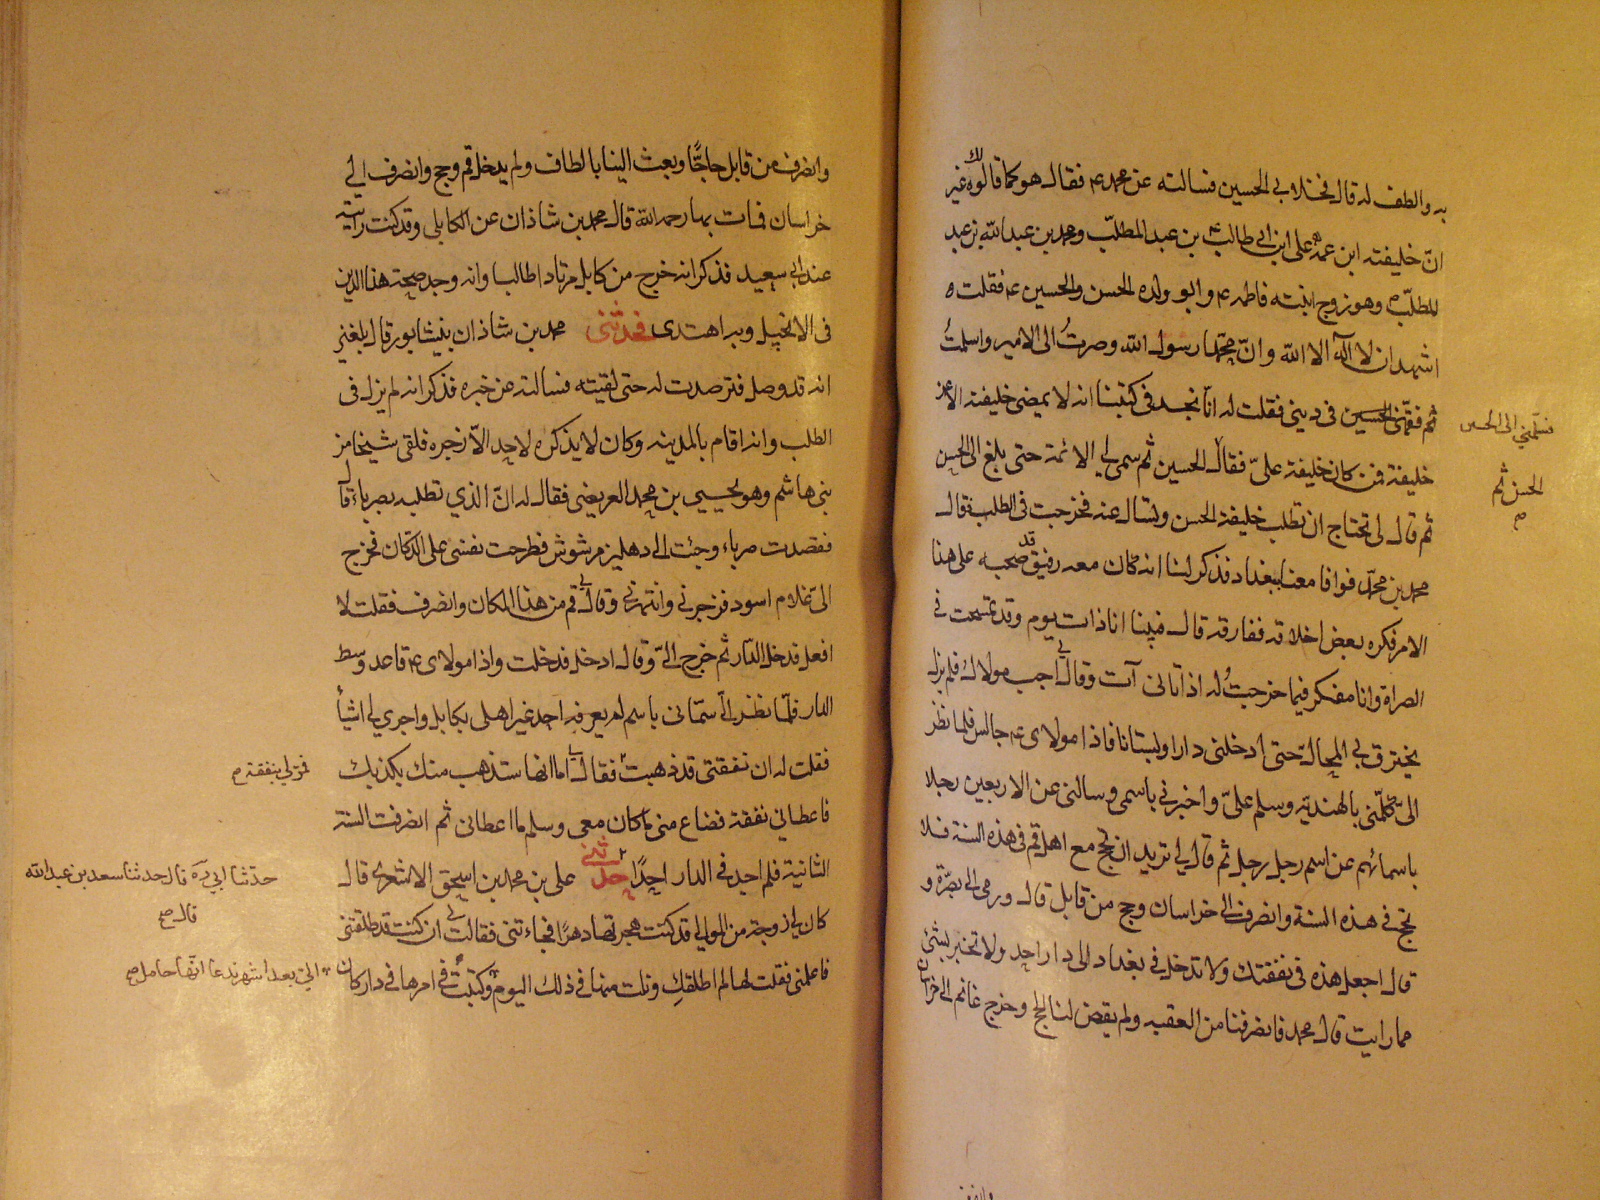 به والطف له قال فخلا بي الحسين فسالته عن محمد ع م فقال هو كما قالوه لك غير
انّ خليفته ابن عمه على ابن ابى طالب بن عبد المطلّب ومحمد بن عبد الله بن عبد
المطلّب وهو زوج ابنته فاطمه ع م وابو ولده الحسن والحسين ع م فقلت
اشهد ان لا اله الا الله وانّ محمّدا رسول الله وصرتُ الى الامير واسلمتُ
ثم فقّهنى الحسين فى دينى فقلت له انّا نجد فى كتبنا انه لا يمضى خليفة الا عن
فسلّمني الى الحسين
خليفة فمن كان خليفة علىّ فقال الحسين ثم سمى لي الائمة حتى بلغ الى الحسن
الحسن ثم
ثم قال لى تحتاج ان تطلب خليفة الحسن وتسال عنه فخرجت فى الطلب قال
محمد بن محمّد فوافا معنا ببغداد فذكر لنا انه كان معه رفيق قد صحبه على هذا
الامر فكره بعض اخلاقه ففارقه قال فبينا انا ذات يوم وقد تمسحت في
الصراة وانا مفكر فيما خرجتُ له اذ اتانى آت وقال لي اجب مولاك فلم يزل
يخترق بي المحالّ حتى ادخلنى دارا وبستانا فاذا مولاى ع م جالس فلما نظر
الىّ كلّمنى بالهنديّه وسلم علىّ واخبرنى باسمى وسالنى عن الاربعين رجلا
باسمائهم عن اسم رجل رجل ثم قال لي تريد ان تحج مع اهل قم فى هذه السنة فلا
تحج في هذه السنة وانصرف الى خراسان وحج من قابل قال ورمى الى بصرّة و
قال اجعل هذه فى نفقتك ولا تدخل في بغداد الى دار احد ولا تخبر بشئ
مما رايت قال محمد فانصرفنا من العقبه ولم يقض لنا الحج وخرج غانم الى خراسان
وانصرف
وانصرف من قابل حاجّا وبعث الينا بالطاف ولم يدخل قم وحج وانصرف الى
خراسان فمات بها رحمه الله قال محمد بن شاذان عن الكابلى وقد كنت رايته
عند ابى سعيد فذكر انه خرج من كابل مرتادا طالبا وانه وجد صحة هذا الدين
فى الانجيل وبه اهتدى فحدثنى محمد بن شاذان بنيشابور قال بلغنى
انه قد وصل فترصدت له حتى لقيته فسالته عن خبره فذكر انه لم يزل فى
الطلب وانه اقام بالمدينه وكان لا يذكره لاحد الّا زجره فلقى شيخا من
بنى هاشم وهو يحيى بن محمد العريضى فقال له انّ الذي تطلبه بصرياء قال
فقصدت صرياء وجئت الى دهليز مرشوش فطرحت نفسى على الدكان فخرج
الىّ غلام اسود فزجرني وانتهرني وقال لي قم من هذا المكان وانصرف فقلت لا
افعل فدخل الدّار ثم خرج الىّ وقال ادخل فدخلت واذا مولاى ع م قاعد وسط
الدار فلمّا نظر الىّ سمّانى باسم لم يعرفه احد غير اهلى بكابل واجرى لي اشياء
فقلت له ان نفقتى قد ذهبت فقال لي اما انها ستذهب منك بكذبك
فمر لي بنفقة
فاعطاني نفقة فضاع منى ما كان معى وسلم ما اعطانى ثم انصرفت السنة
الثانية فلم اجد فى الدار احدًا حدثنى على بن محمد بن اسحق الاشعرى قال
حدّثنا ابي ره قال حدثنا سعد بن عبد الله
قال صح
كان لي زوجة من الموالي قد كنت هجرتها دهرًا فجاءتنى فقالت لي ان كنت قد طلقتنى
فاعلمنى فقلت لها لم اطلقكِ ونلت منها فى ذلك اليوم وكتبتُ فى امرها فى دار كان
الىّ بعد اشهر تدعا انّها حامل صح